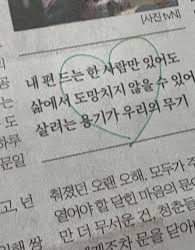 [사진 tvN]
내 편 드는 한 사람만 있어도
삶에서 도망치지 않을 수 있어
살려는 용기가 우리의 무기
춰졌던 오랜 오해, 모두가 주
열어야 할 닫힌 마음의 문
만 더 무서운 건, 청춘들
세계조차 문을 닫아
공
는
도
하루
문일
고, 넌